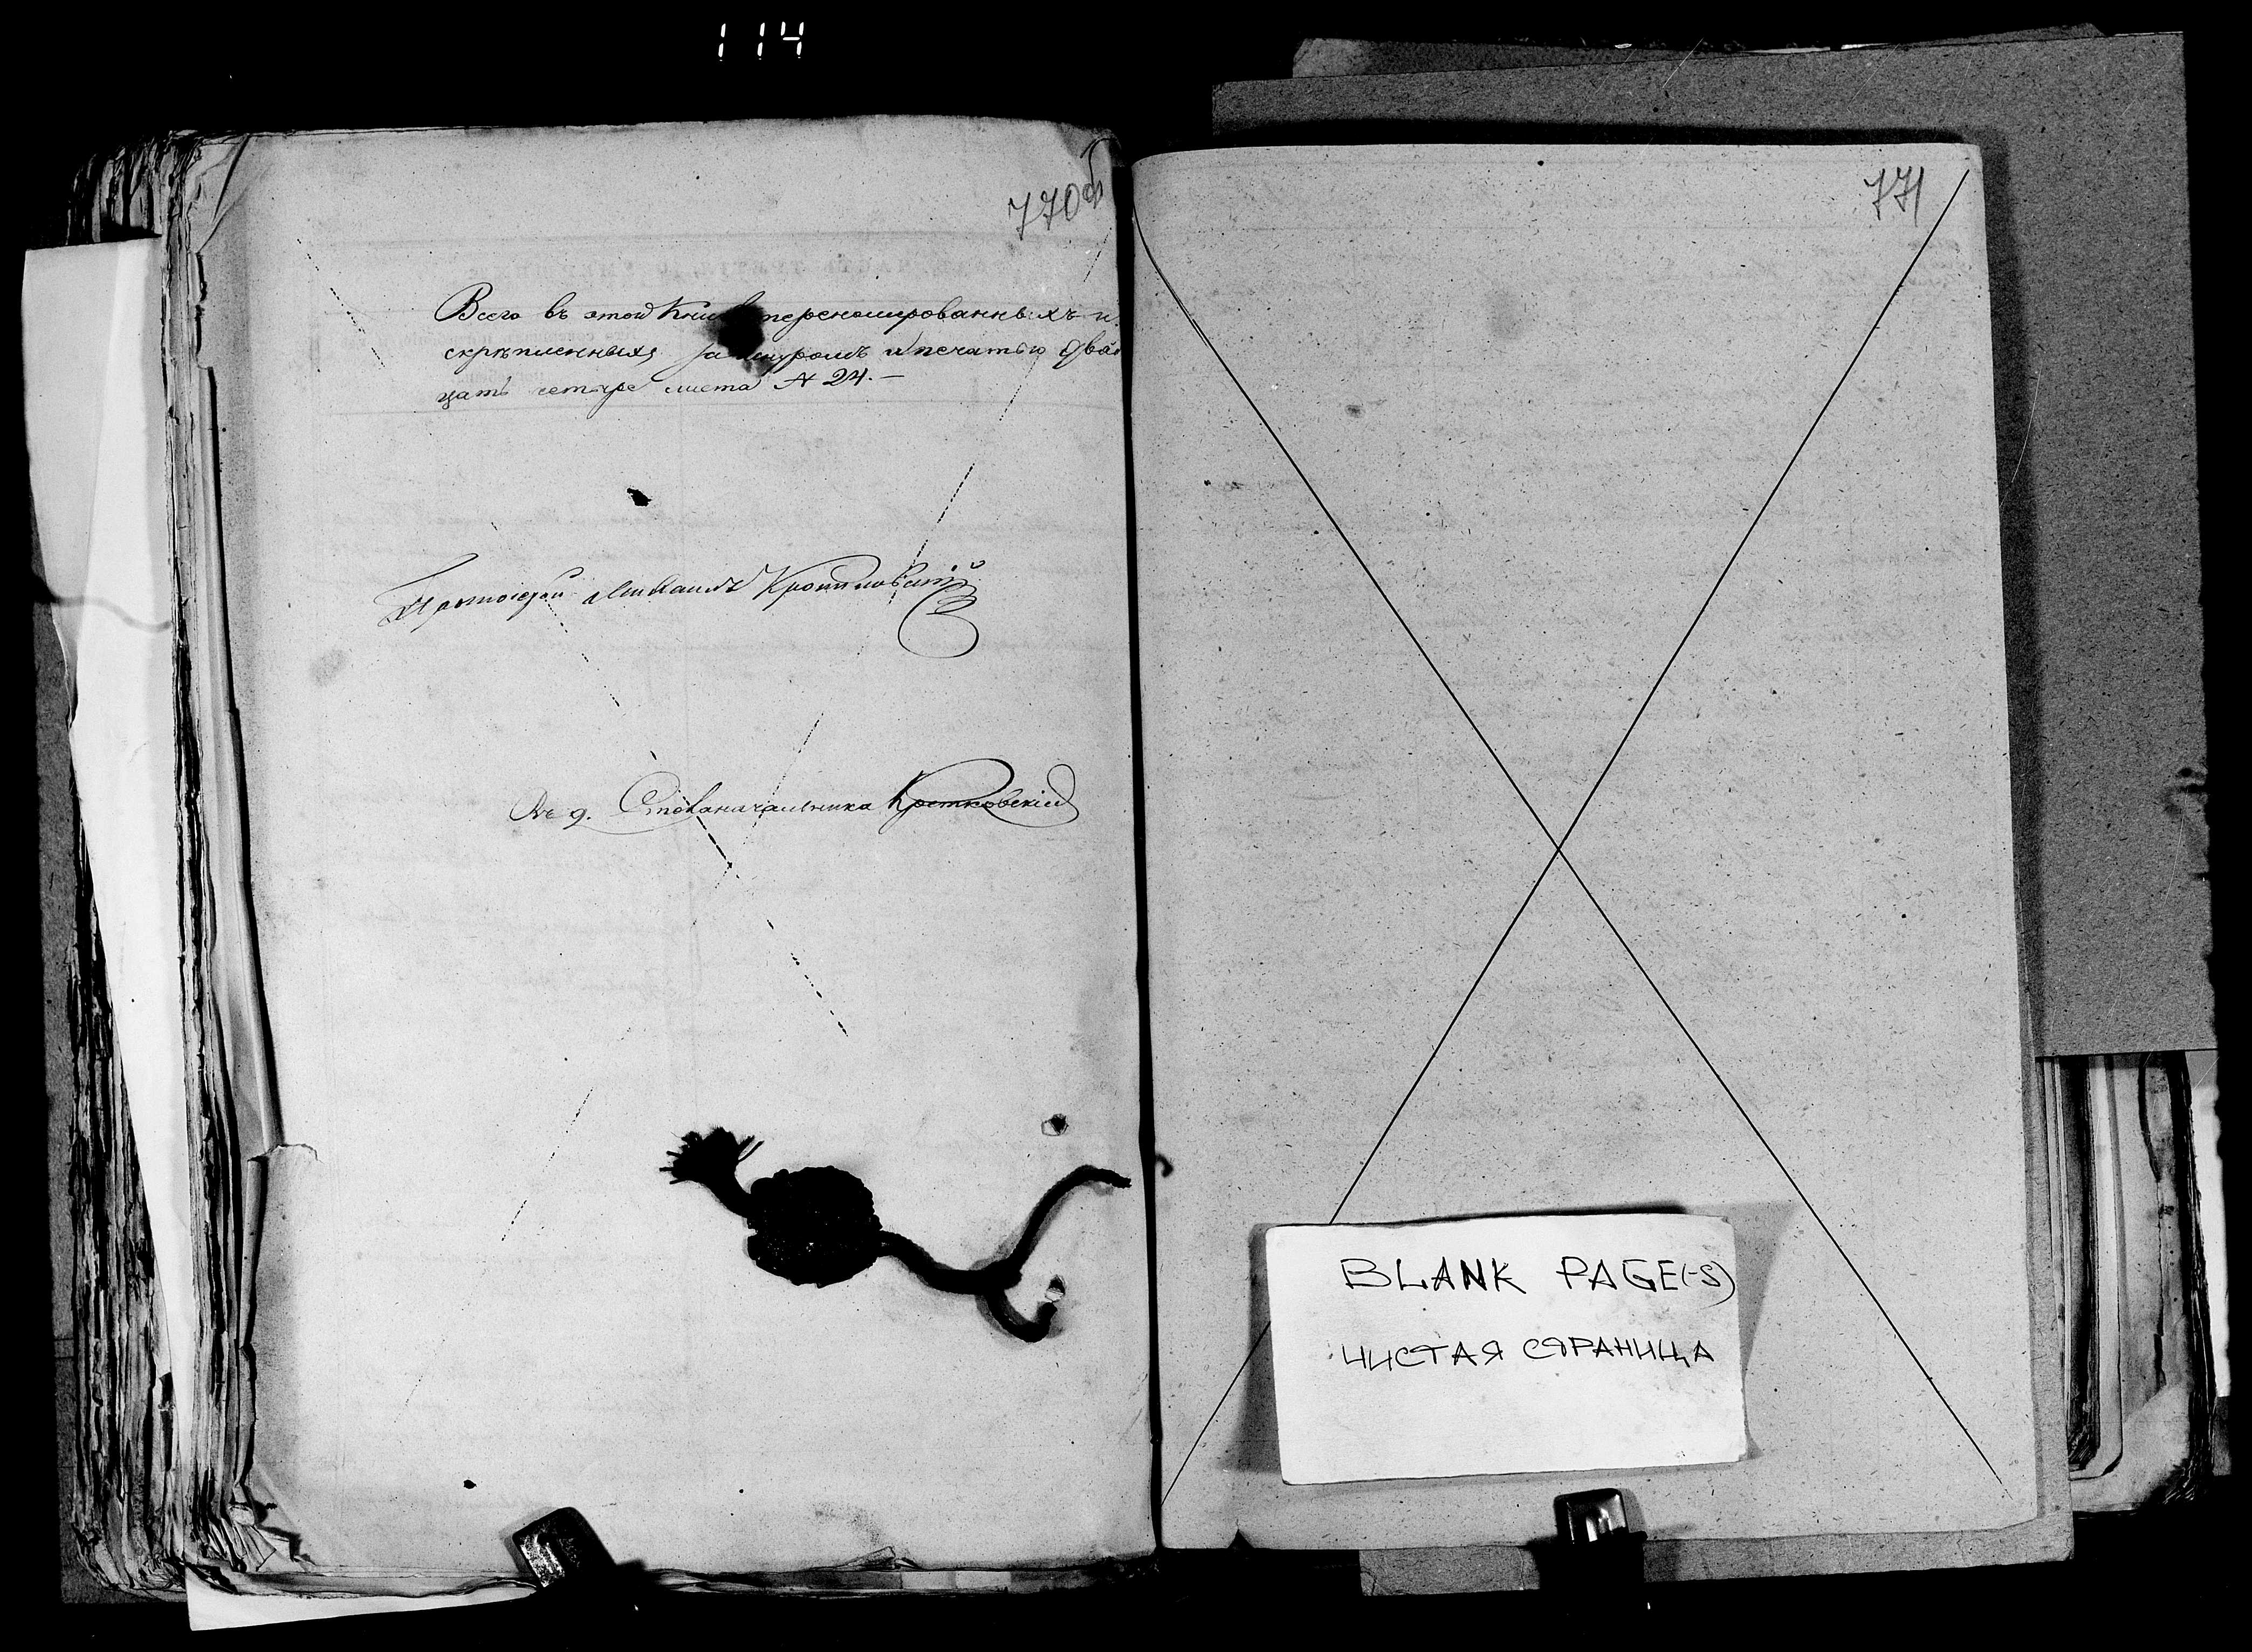 114
770об
Всего въ этой Книгѣ переномированныхъ и
скрѣпленныхъ за шнуромъ и печатью двад
цать четыре листа № 24. —
Протоіерей Михаилъ
Въ д. Столоначальника
771
BLANK PAGE(-S)
ЧИСТАЯ СТРАНИЦА